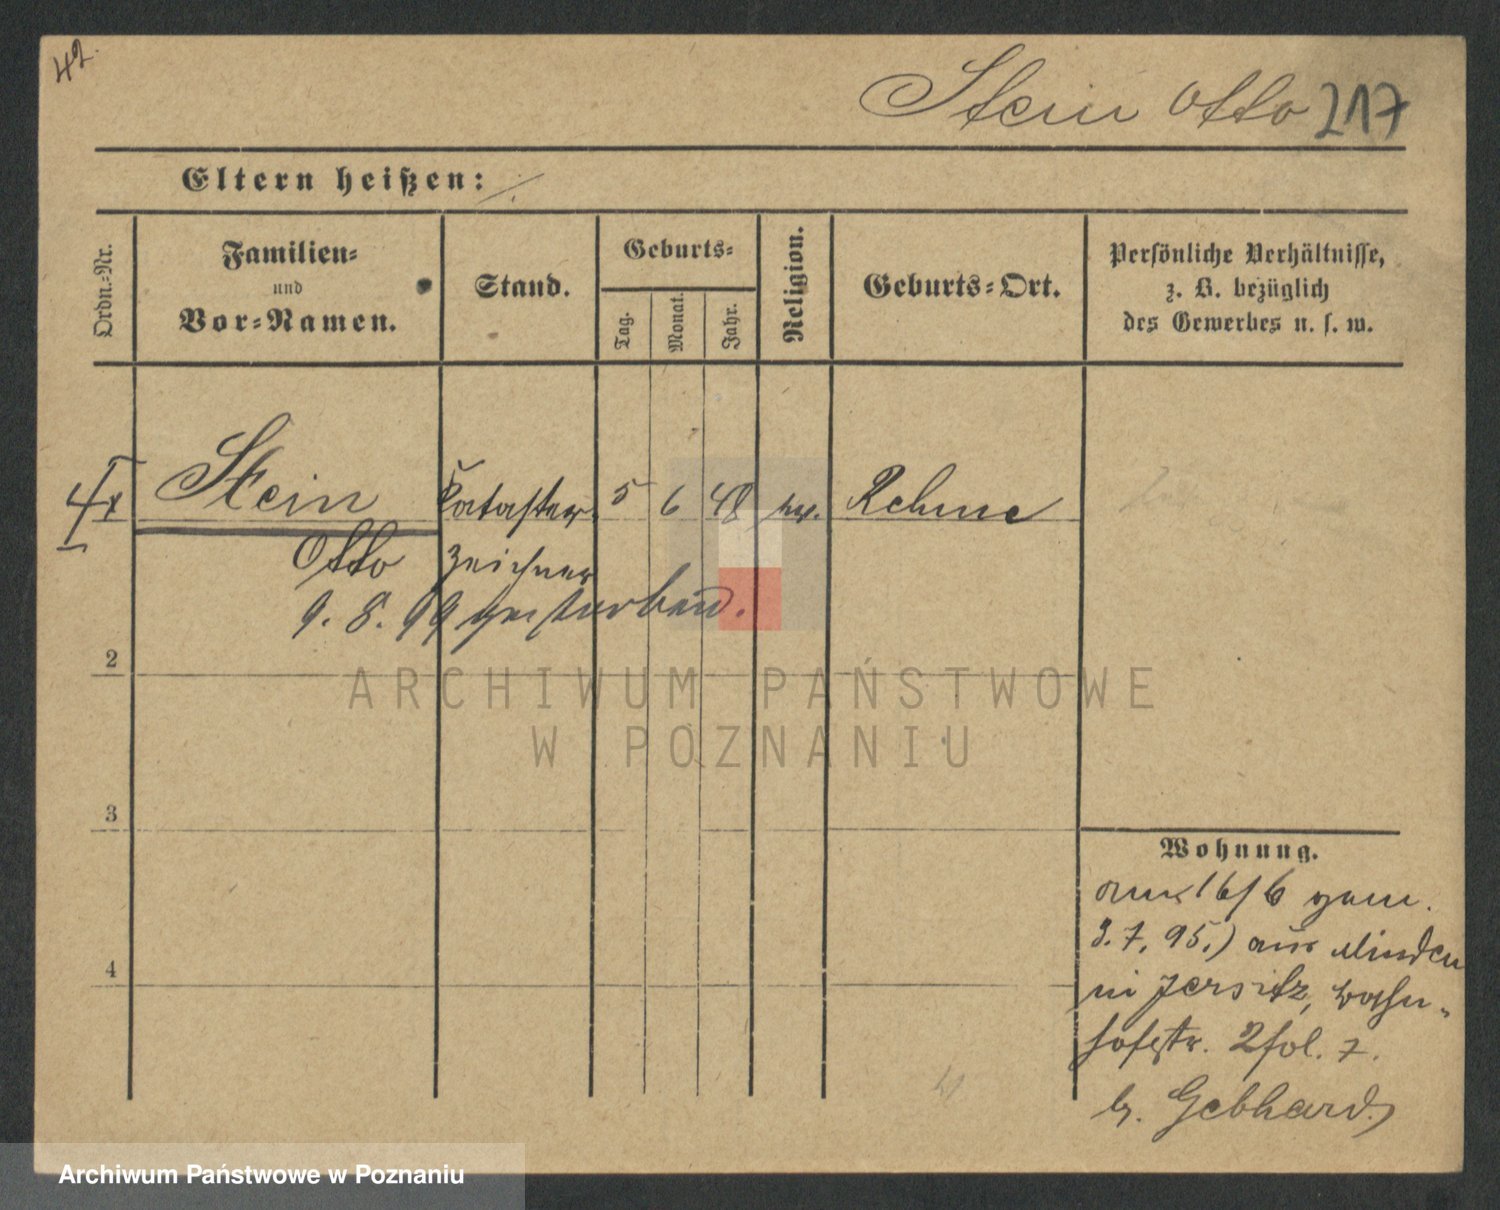 42.
Stein Otto 217
Eltern heißen: ·/.
Ordn.-Nr.
Familien-
und
Vor-Namen.
Stand.
Geburts-
Tag.
Monat.
Jahr.
Religion.
Geburts-Ort.
Persönliche Verhältnisse,
z. B. bezüglich
des Gewerbes u. s. w.
Stein Kataster- 5 6 48 ev. Rehme
Otto zeichner
9. 8. 99 gestorben.
2
3
4
ARCHIWUM PAŃSTWOWE
W POZNANIU
Wohnung.
am 16/6 gem.
3.7.95.) aus Minden
in Jersitz, Bahn-
hofstr. 2 fol. 7.
b. Gebhard.
Archiwum Państwowe w Poznaniu